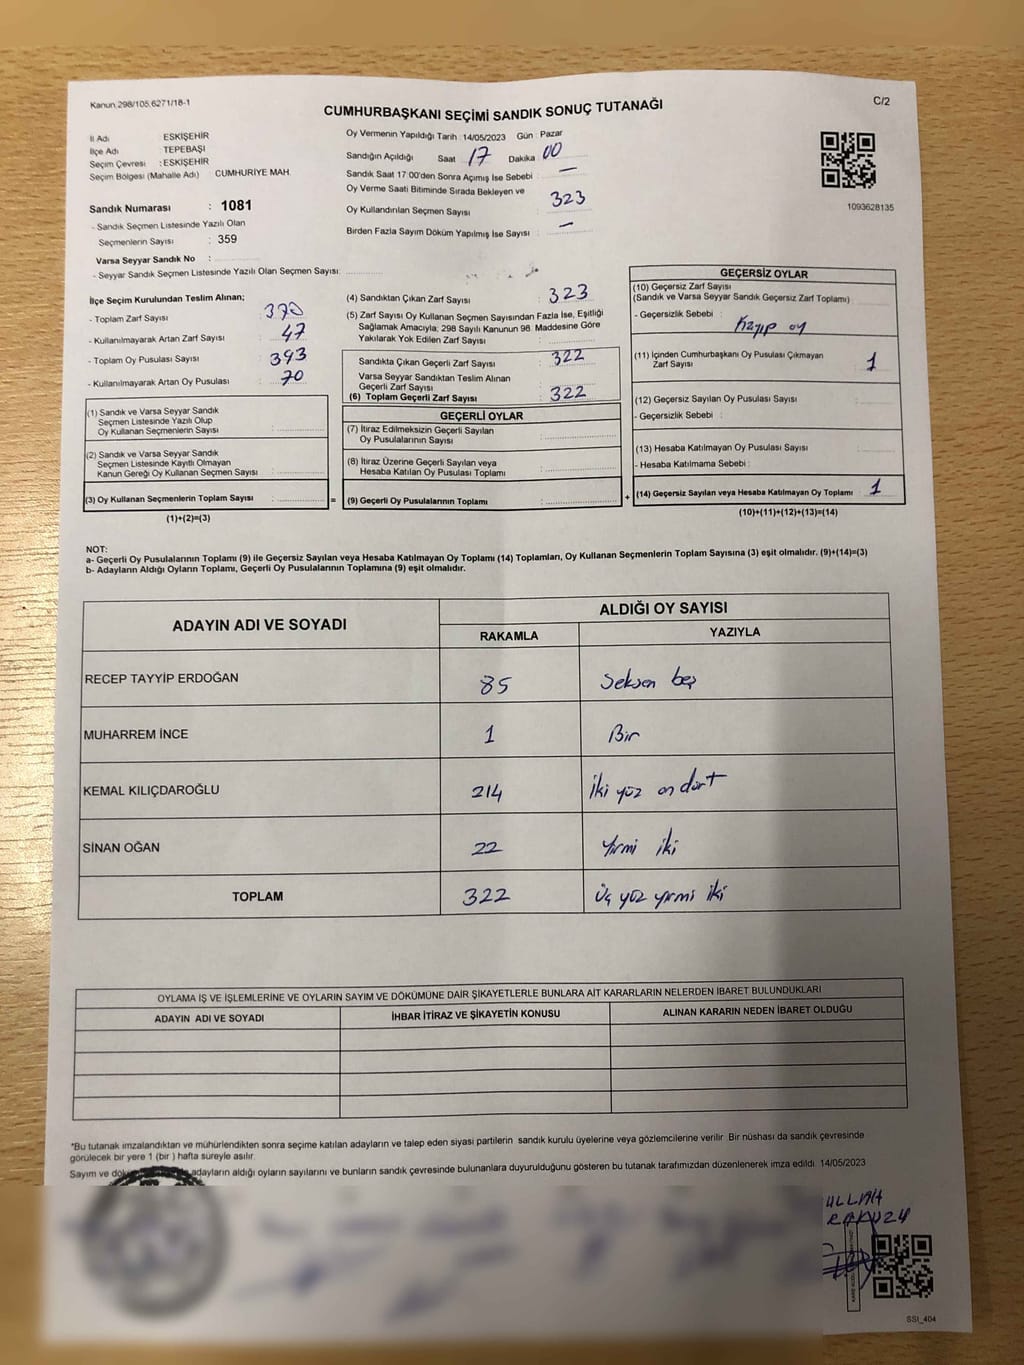 Kanun 298/105.6271/18-1
CUMHURBAŞKANI SEÇİMİ SANDIK SONUÇ TUTANAĞI
C/2
İl Adı : ESKİŞEHİR
İlçe Adı TEPEBAŞI
Seçim Çevresi : ESKİŞEHİR
Seçim Bölgesi (Mahalle Adı) CUMHURİYE MAH.
Sandık Numarası : 1081
- Sandık Seçmen Listesinde Yazılı Olan
Seçmenlerin Sayısı : 359
Varsa Seyyar Sandık No :
- Seyyar Sandık Seçmen Listesinde Yazılı Olan Seçmen Sayısı:
Oy Vermenin Yapıldığı Tarih : 14/05/2023 Gün : Pazar
Sandığın Açıldığı Saat 17 Dakika 00
Sandık Saat 17:00'den Sonra Açımış İse Sebebi : —
Oy Verme Saati Bitiminde Sırada Bekleyen ve
Oy Kullandırılan Seçmen Sayısı : 323
Birden Fazla Sayım Döküm Yapılmış İse Sayısı : —
1093628135
İlçe Seçim Kurulundan Teslim Alınan;
- Toplam Zarf Sayısı : 370
- Kullanılmayarak Artan Zarf Sayısı : 47
- Toplam Oy Pusulası Sayısı : 393
- Kullanılmayarak Artan Oy Pusulası : 70
(1) Sandık ve Varsa Seyyar Sandık
Seçmen Listesinde Yazılı Olup
Oy Kullanan Seçmenlerin Sayısı :
(2) Sandık ve Varsa Seyyar Sandık
Seçmen Listesinde Kayıtlı Olmayan
Kanun Gereği Oy Kullanan Seçmen Sayısı :
(3) Oy Kullanan Seçmenlerin Toplam Sayısı : =
(1)+(2)=(3)
(4) Sandıktan Çıkan Zarf Sayısı : 323
(5) Zarf Sayısı Oy Kullanan Seçmen Sayısından Fazla İse, Eşitliği
Sağlamak Amacıyla; 298 Sayılı Kanunun 98. Maddesine Göre
Yakılarak Yok Edilen Zarf Sayısı :
Sandıkta Çıkan Geçerli Zarf Sayısı : 322
Varsa Seyyar Sandıktan Teslim Alınan
Geçerli Zarf Sayısı :
(6) Toplam Geçerli Zarf Sayısı : 322
GEÇERLİ OYLAR
(7) İtiraz Edilmeksizin Geçerli Sayılan
Oy Pusulalarının Sayısı :
(8) İtiraz Üzerine Geçerli Sayılan veya
Hesaba Katılan Oy Pusulası Toplamı :
(9) Geçerli Oy Pusulalarının Toplamı : +
GEÇERSİZ OYLAR
(10) Geçersiz Zarf Sayısı
(Sandık ve Varsa Seyyar Sandık Geçersiz Zarf Toplamı)
- Geçersizlik Sebebi : Kayıp oy
(11) İçinden Cumhurbaşkanı Oy Pusulası Çıkmayan
Zarf Sayısı 1
(12) Geçersiz Sayılan Oy Pusulası Sayısı
- Geçersizlik Sebebi :
(13) Hesaba Katılmayan Oy Pusulası Sayısı
- Hesaba Katılmama Sebebi :
(14) Geçersiz Sayılan veya Hesaba Katılmayan Oy Toplamı : 1
(10)+(11)+(12)+(13)=(14)
NOT:
a- Geçerli Oy Pusulalarının Toplamı (9) ile Geçersiz Sayılan veya Hesaba Katılmayan Oy Toplamı (14) Toplamları, Oy Kullanan Seçmenlerin Toplam Sayısına (3) eşit olmalıdır. (9)+(14)=(3)
b- Adayların Aldığı Oyların Toplamı, Geçerli Oy Pusulalarının Toplamına (9) eşit olmalıdır.
ADAYIN ADI VE SOYADI ALDIĞI OY SAYISI
RAKAMLA YAZIYLA
RECEP TAYYİP ERDOĞAN 85 Seksen beş
MUHARREM İNCE 1 Bir
KEMAL KILIÇDAROĞLU 214 İki yüz on dört
SİNAN OĞAN 22 Yirmi iki
TOPLAM 322 Üç yüz yirmi iki
OYLAMA İŞ VE İŞLEMLERİNE VE OYLARIN SAYIM VE DÖKÜMÜNE DAİR ŞİKAYETLERLE BUNLARA AİT KARARLARIN NELERDEN İBARET BULUNDUKLARI
ADAYIN ADI VE SOYADI İHBAR İTİRAZ VE ŞİKAYETİN KONUSU ALINAN KARARIN NEDEN İBARET OLDUĞU
*Bu tutanak imzalandıktan ve mühürlendikten sonra seçime katılan adayların ve talep eden siyasi partilerin sandık kurulu üyelerine veya gözlemcilerine verilir. Bir nüshası da sandık çevresinde
görülecek bir yere 1 (bir) hafta süreyle asılır.
Sayım ve adayların aldığı oyların sayılarını ve bunların sandık çevresinde bulunanlara duyurulduğunu gösteren bu tutanak tarafımızdan düzenlenerek imza edildi. 14/05/2023
ULLAH
SSI_404